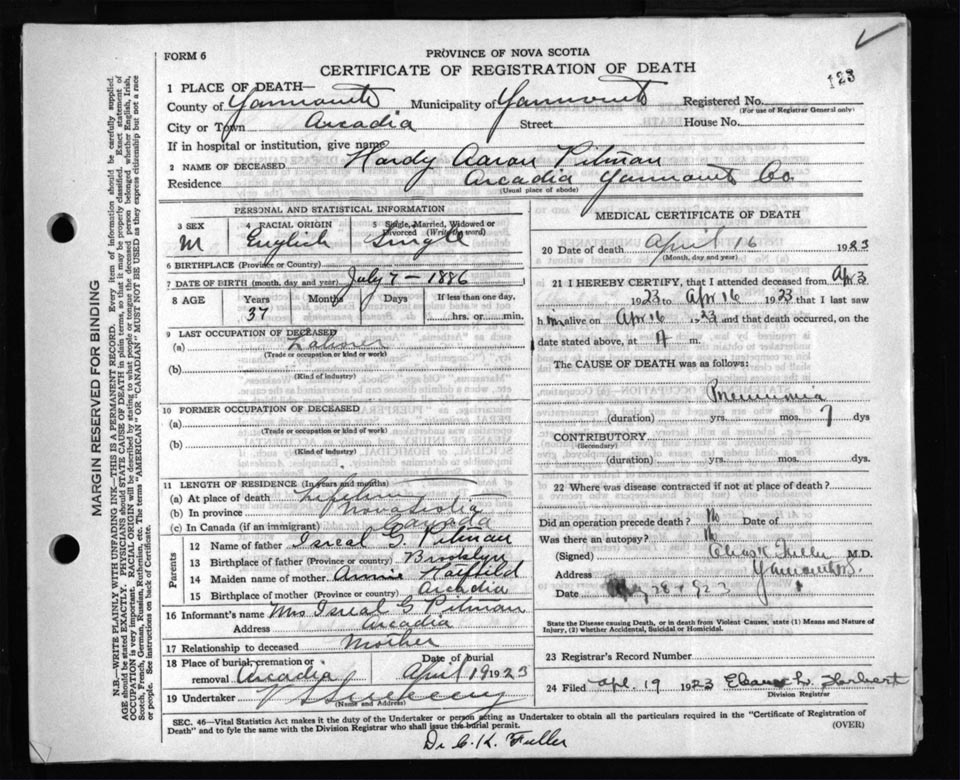 FORM 6
PROVINCE OF NOVA SCOTIA
CERTIFICATE OF REGISTRATION OF DEATH
123
1 PLACE OF DEATH—
County of Yarmouth Municipality of Yarmouth Registered No.
(For use of Registrar General only)
City or Town Arcadia Street House No.
If in hospital or institution, give name
2 NAME OF DECEASED Hardy Aaron Pitman
Residence Arcadia Yarmouth Co.
(Usual place of abode)
PERSONAL AND STATISTICAL INFORMATION
3 SEX 4 RACIAL ORIGIN 5 Single, Married, Widowed or
Divorced (Write the word)
M English Single
6 BIRTHPLACE (Province or Country)
7 DATE OF BIRTH (month, day and year) July 7 - 1886
8 AGE Years Months Days If less than one day,
37 hrs. or min.
9 LAST OCCUPATION OF DECEASED
(a) Laborer
(Trade or occupation or kind or work)
(b)
(Kind of industry)
10 FORMER OCCUPATION OF DECEASED
(a)
(Trade or occupation or kind of work)
(b)
(Kind of industry)
11 LENGTH OF RESIDENCE (In years and months)
(a) At place of death Lifetime
(b) In province Nova Scotia
(c) In Canada (if an immigrant) Canada
Parents
12 Name of father Isreal G. Pitman
13 Birthplace of father (Province or country) Brooklyn
14 Maiden name of mother Annie Hatfield
15 Birthplace of mother (Province or country) Arcadia
16 Informant's name Mrs Isreal G Pitman
Address Arcadia
17 Relationship to deceased Mother
18 Place of burial, cremation or Date of burial
removal Arcadia April 19 1923
19 Undertaker
(Name and Address)
MEDICAL CERTIFICATE OF DEATH
20 Date of death April 16 1923
(Month, day and year)
21 I HEREBY CERTIFY, that I attended deceased from Apr 3
1923 to Apr 16 1923 that I last saw
h im alive on Apr 16 1923 and that death occurred, on
date stated above, at A m.
The CAUSE OF DEATH was as follows:
Pneumonia
(duration) yrs. mos. 7 dys
CONTRIBUTORY
(Secondary)
(duration) yrs. mos. dys.
22 Where was disease contracted if not at place of death?
Did an operation precede death? No Date of
Was there an autopsy? No
(Signed) Fuller M.D.
Address Yarmouth
Date 28 1923
State the Disease causing Death, or in death from Violent Causes, state (1) Means and Nature of
Injury, (2) whether Accidental, Suicidal or Homicidal.
23 Registrar's Record Number
24 Filed Apl. 19 1923
Division Registrar
SEC. 46—Vital Statistics Act makes it the duty of the Undertaker or person acting as Undertaker to obtain all the particulars required in the "Certificate of Registration of
Death" and to fyle the same with the Division Registrar who shall issue the burial permit.
(OVER)
Dr C. K. Fuller
MARGIN RESERVED FOR BINDING
N.B.—WRITE PLAINLY WITH UNFADING INK—THIS IS A PERMANENT RECORD. Every item of information should be carefully supplied.
AGE should be stated EXACTLY. PHYSICIANS should STATE CAUSE OF DEATH in plain terms, so that it may be properly classified. Exact statement of
OCCUPATION is very important. RACIAL ORIGIN will be described by stating to what people or tongue the deceased person belonged, whether English, Irish,
Scotch, French, German, Russian, Ruthenian, etc. The terms "AMERICAN" OR "CANADIAN" MUST NOT BE USED as they express citizenship but not a race
or people. See instructions on back of Certificate.